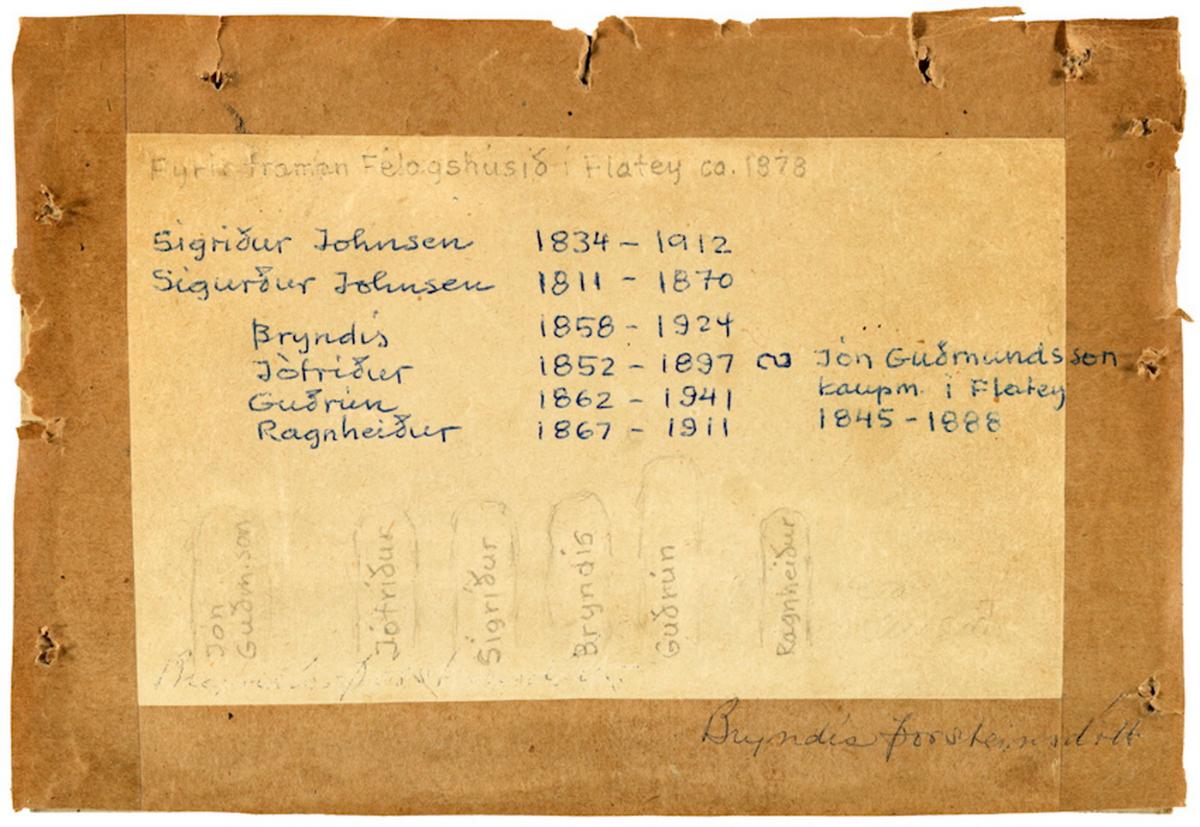 Fyrir framan Félagshúsið í Flatey ca. 1878
Sigríður Johnsen 1834 - 1912
Sigurður Johnsen 1811 - 1870
Bryndís 1858 - 1924
Jófríður 1852 - 1897 ∞ Jón Guðmundsson
kaupm. í Flatey
Guðrún 1862 - 1941
Ragnheiður 1867 - 1911 1845 - 1888
Jón
Guðm.son
Jófríður
Sigríður
Bryndís
Guðrún
Ragnheiður
Bryndís Þorsteinsdótt